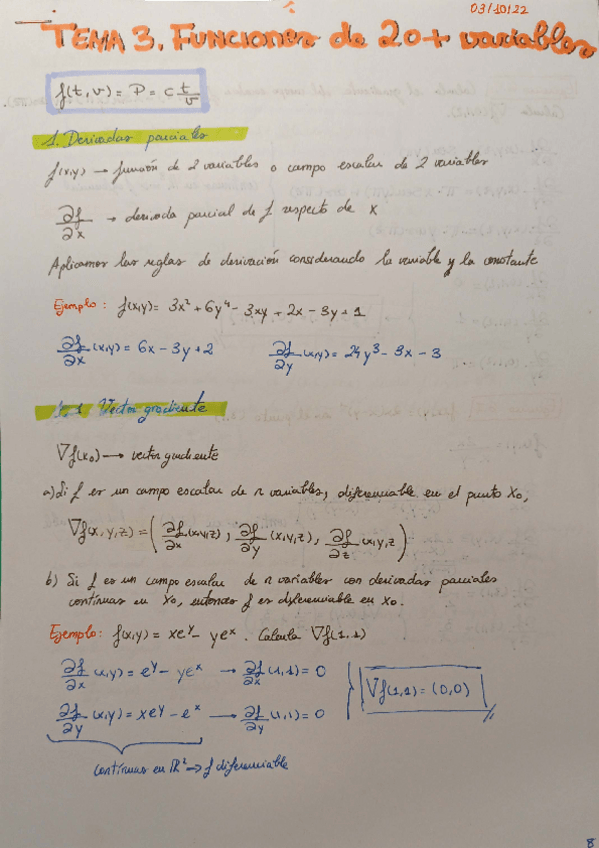 03/10/22
TEMA 3. FUNCIONES de 2 o + variables
f(t, v) = P = c t/v
1. Derivadas parciales
f(x,y) → función de 2 variables o campo escalar de 2 variables
∂f/∂x → derivada parcial de f respecto de x
Aplicamos las reglas de derivación considerando la variable y la constante
Ejemplo: f(x,y) = 3x² + 6y⁴ - 3xy + 2x - 3y + 1
∂f/∂x (x,y) = 6x - 3y + 2 ∂f/∂y (x,y) = 24y³ - 3x - 3
1.1 Vector gradiente
∇f(x₀) → vector gradiente
a) Si f es un campo escalar de n variables, diferenciable en el punto x₀,
∇f(x,y,z) = (∂f/∂x (x,y,z), ∂f/∂y (x,y,z), ∂f/∂z (x,y,z))
b) Si f es un campo escalar de n variables con derivadas parciales
continuas en x₀, entonces f es diferenciable en x₀.
Ejemplo: f(x,y) = xeʸ - yeˣ. Calcula ∇f(1,1)
∂f/∂x (x,y) = eʸ - yeˣ → ∂f/∂x (1,1) = 0
∂f/∂y (x,y) = xeʸ - eˣ → ∂f/∂y (1,1) = 0
∇f(1,1) = (0,0)
continuas en ℝ² → f diferenciable
8